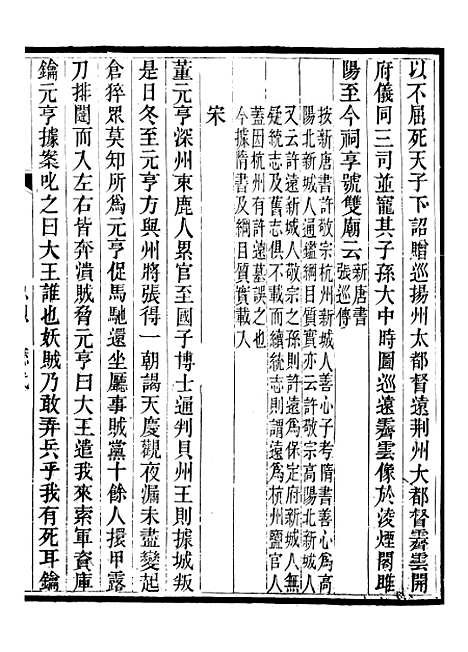 以不屈死天子下詔贈巡揚州大都督遠荆州大都督霽雲開
府儀同三司並寵其子孫大中時圖巡遠霽雲像於淩煙閣睢
陽至今祠享號雙廟云新唐書
張巡傳
按新唐書許敬宗杭州新城人善心子考隋書善心爲高
陽北新城人通鑑綱目質實亦云許敬宗高陽北新城人
又云許遠新城人敬宗之孫則許遠爲保定府新城人無
疑統志及舊志俱不載而續統志則謂遠爲杭州鹽官人
蓋因杭州有許遠墓誤之也
今據隋書及綱目質實載入
宋
董元亨深州束鹿人累官至國子博士通判貝州王則據城叛
是日冬至元亨方與州將張得一朝謁天慶觀夜漏未盡變起
倉猝眾莫知所爲元亨促馬馳還坐廳事賊黨十餘人擐甲露
刀排闥而入左右皆奔潰賊脅元亨曰大王遣我來索軍資庫
鑰元亨據案叱之曰大王誰也妖賊乃敢弄兵乎我有死耳鑰